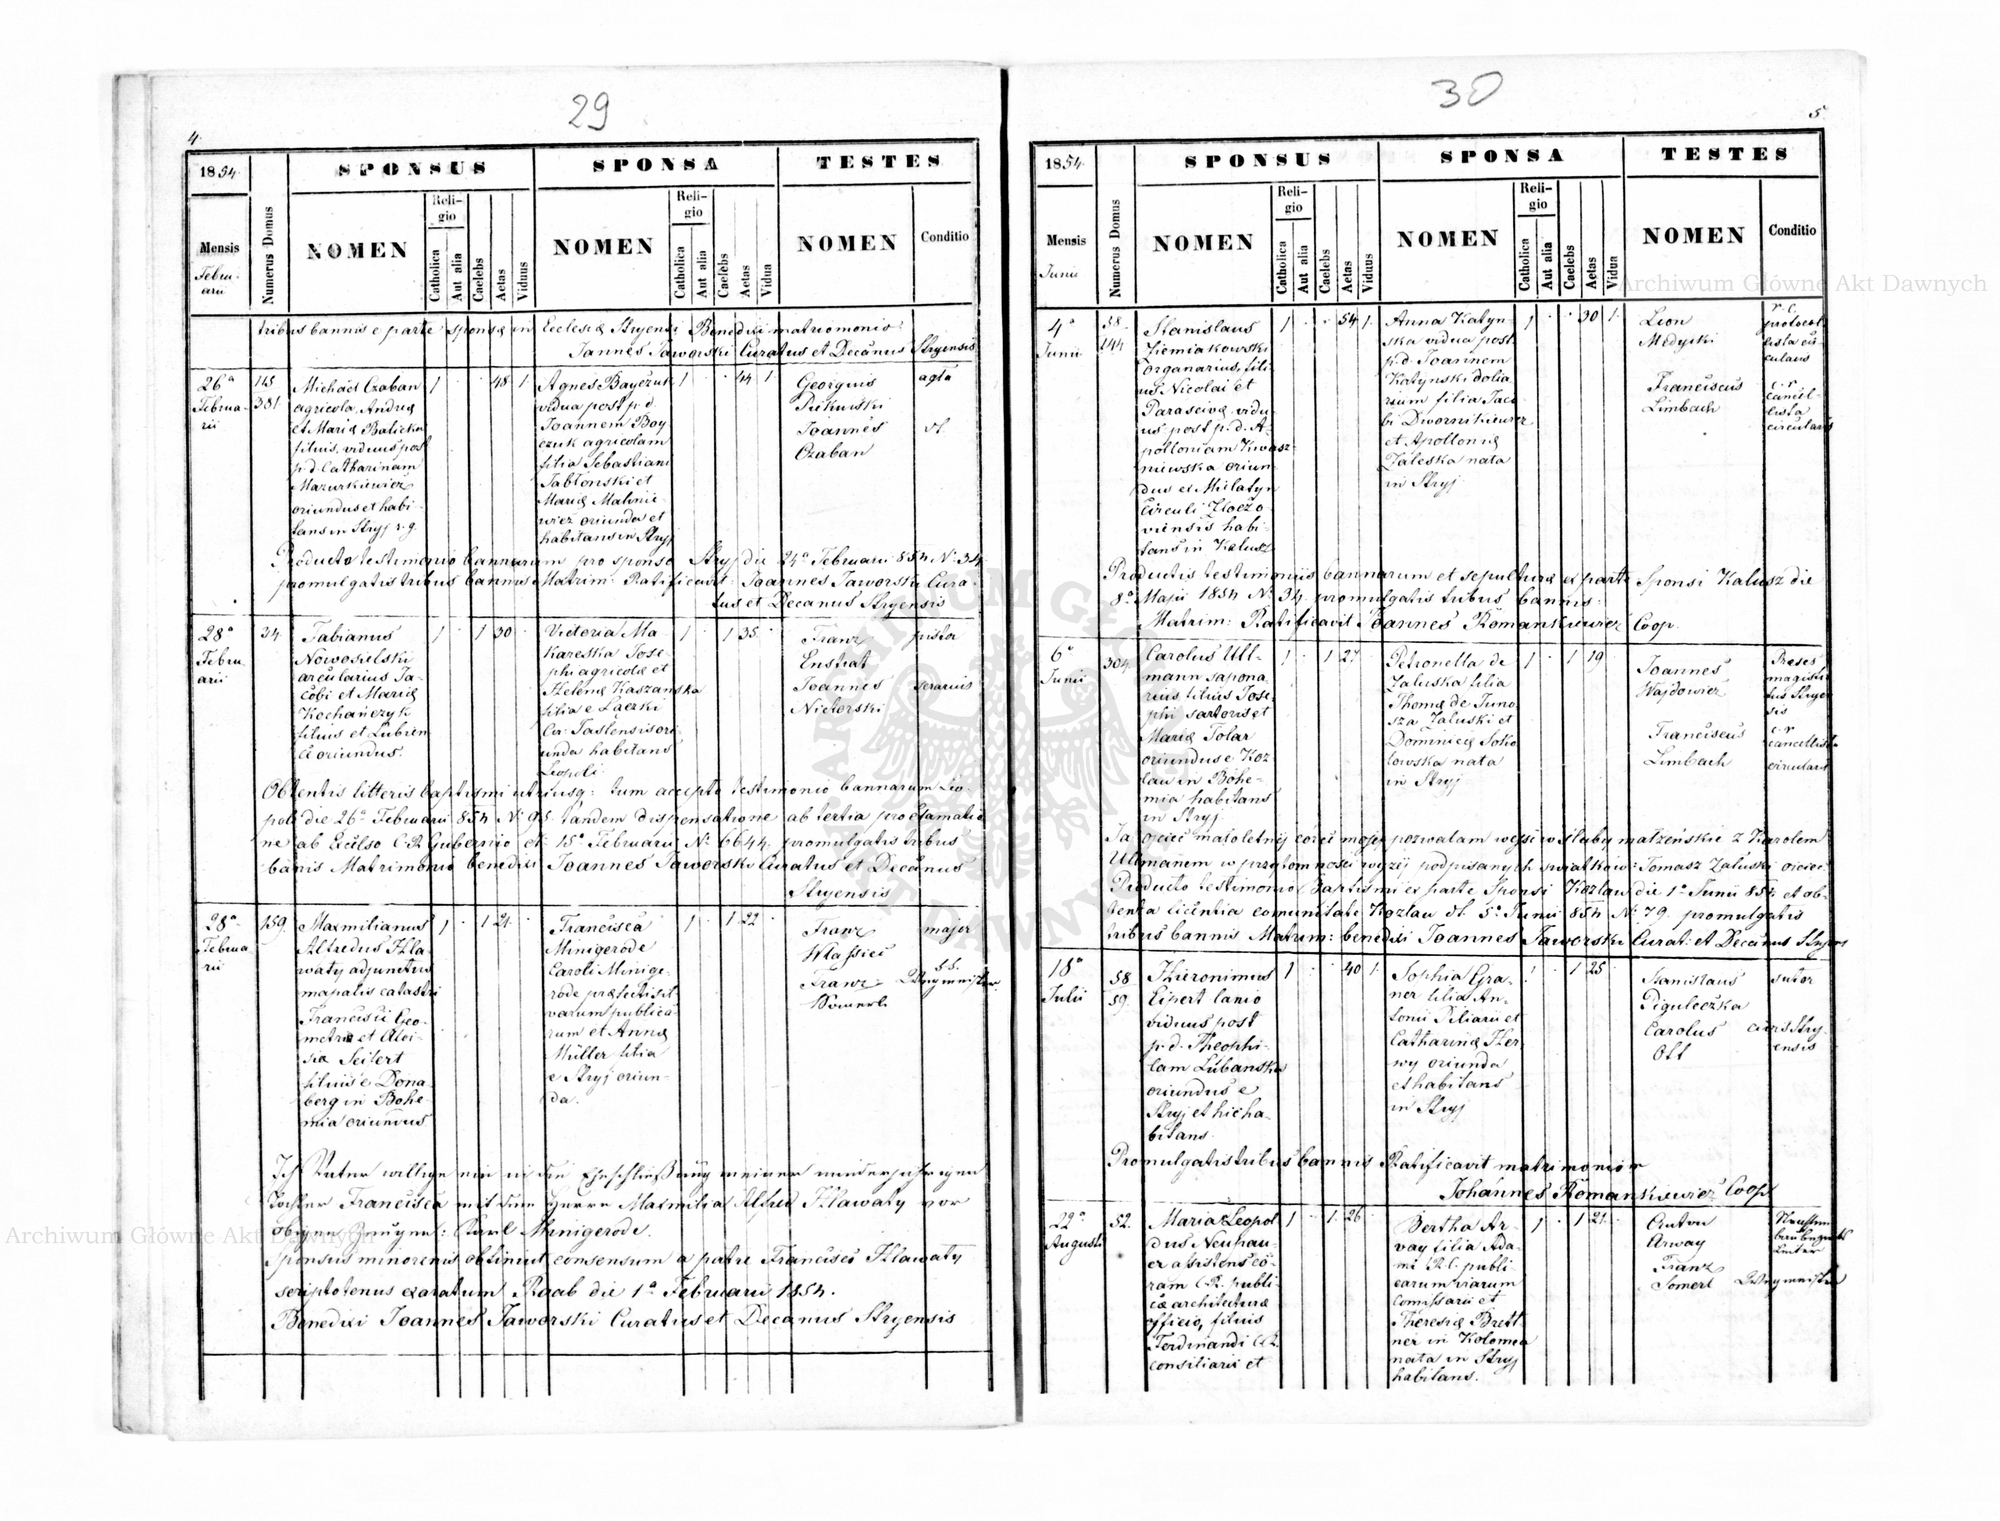 29
4.
1854.
SPONSUS
SPONSA
TESTES
Mensis
Februarii
Numerus Domus
NOMEN
Religio
Catholica
Aut alia
Caelebs
Aetas
Viduus
NOMEN
Religio
Catholica
Aut alia
Caelebs
Aetas
Vidua
NOMEN
Conditio
tribus bannis e parte sponsæ in Ecclesia Stryensi Benedixi matrimonio
Joannes Jaworski Curatus et Decanus Stryensis
26a
Februarii
145
381
Michael Czaban
agricola, Andreæ
et Mariæ Balicka
filius, viduus post
p. d. Catharinam
Mazurkiewicz
oriundus et habi-
tans in Stryj r. g.
1 . . 48 1
Agnes Bayczuk
vidua post p. d.
Joannem Bay
czuk agricolam
filia Sebastiani
Jabłonski et
Mariæ Malinie-
wicz oriunda et
habitans in Stryj
1 . . 44 1
Georgius
Piekuński
Joannes
Czaban
agla
dt.
Producto testimonio bannorum pro sponso Stryj die 24a Februarii 854 No 34
promulgatis tribus bannis Matrim: Ratificavit: Joannes Jaworski Cura-
tus et Decanus Stryensis
28a
Febru-
arii
24.
Fabianus
Nowosielski
arcularius Ja-
cobi et Mariæ
Kochańczyk
filius et Lubien
ce oriundus.
1 . 1 30 .
Victoria Ma-
kareska Jose-
phi agricolæ et
Helenæ Kaszanska
filia e Łaczki
Cir: Jaslensis ori-
unda habitans
Leopoli.
1 . 1 35 .
Franz
Enstrat
Joannes
Nieterski
pistor
serarius
Obtentis litteris baptismi utriusq: tum accepto testimonio bannorum Leo-
poli die 26a Februarii 854 No 95 tandem dispensatione ab tertia proclamatio
ne ab Excelso C. R. Gubernio et: 15a Februarii No 6644. promulgatis tribus
banis Matrimonio benedixi Joannes Jaworski Curatus et Decanus
Stryensis
28a
Februa
rii
159
Maxmilianus
Alfredus Hla-
waty adjunctus
mapalis catastri
Francisci Geo-
metræ et Aloi-
siæ Seifert
filius e Dona-
berg in Bohe-
mia oriundus
1 . 1 24 .
Francisca
Minigerode
Caroli Minige-
rode præfecti sit-
varum publica-
rum et Annæ
Müller filia
e Stryj oriun-
da.
1 . 1 22 .
Franz
Wlassici
Franz
Somerl
major
k.k.
Wegmeister
Ich Vater willige ein in die Eheschließung meiner minderjährigen
Tochter Francisca mit dem Herrn Maxmilia Alfred Hlawaty vor
obigen Zeugen: Karl Minigerode.
Sponsus minorenis obtinuit consensum a patre Francisco Hlawaty
scriptotenus exaratum Raab die 1a Februarii 1854.
Benedixi Joannes Jaworski Curatus et Decanus Stryensis
30
5
1854.
SPONSUS
SPONSA
TESTES
Mensis
Junii
Numerus Domus
NOMEN
Religio
Catholica
Aut alia
Caelebs
Aetas
Viduus
NOMEN
Religio
Catholica
Aut alia
Caelebs
Aetas
Vidua
NOMEN
Conditio
4a
Junii
58
144
Stanislaus
Ziemiakowski
organarius, fili-
us Nicolai et
Parascivæ vidu-
us post p. d. A-
polloniam Kwasz-
niewska oriun-
dus ex Milatyn
Circuli Zloczo-
viensis habi-
tans in Kalusz
1 . . 54 1.
Anna Katyn-
ska vidua post
p. d. Joannem
Katynski dolia
rium filia Jaco
bi Dwornikiewicz
et Apolloniæ
Zaleska nata
in Stryj
1 . . 30 1.
Leon
Medycki
Franciscus
Limbach
r. c.
protocol-
lista cir-
cularis
c. r
cancel-
lista
circularis
Productis testimoniis bannorum et sepulturæ ex parte Sponsi Kalusz die
8a Maji 1854 No 34. promulgatis tribus bannis.
Matrim: Ratificavit Joannes Romankiewicz Coop.
6a
Junii
304
Carolus Ull-
mann sapona
rius, filius Jose-
phi sartoris et
Mariæ Tolar
oriundus e Koz
lau in Bohe-
mia habitans
in Stryj
1 . 1 27 .
Petronella de
Zaluska filia
Thomæ de Juno-
sza Zaluski et
Dominicæ Soko
lowska nata
in Stryj
1 . 1 19 .
Joannes
Wajdowicz
Franciscus
Limbach
Præses
magistra
tus Strye
sis
c. r
cancellista
circularis
Ja ojciec małoletniej córci mojej pozwalam wejść w śluby małżeńskie z Karolem
Ullmanem w przytomności wyżej podpisanych świadków: Tomasz Zaluski ojciec
Producto testimonio Baptismi ex parte Sponsi Kozlau die 1a Junii 854 et ob-
tenta licentia comunitate Kozlau dt. 5a Junii 854 No 79. promulgatis
tribus bannis Matrim: benedixi Joannes Jaworski Curat: et Decanus Stryens
18a
Julii
58
59.
Hieronimus
Eipert lanio
viduus post
p. d. Theophi-
lam Lubanska
oriundus e
Stryj et hic ha-
bitans.
1 . . 40 1.
Sophia Gra-
ner filia An-
tonii Piliarii et
Catharinæ Her-
wy oriunda
et habitans
in Stryj
1 . 1 25 .
Stanislaus
Piguleczka
Carolus
Ott
sutor
civis Stry-
ensis
Promulgatis tribus bannis Ratificavit matrimonium
Johannes Romankiewicz Coop.
22a
Augusti
52.
Maria Leopol
dus Neuhau-
er assistens co-
ram C. R. publi-
cæ architecturæ
officio, filius
Ferdinandi C. R.
consiliarii et
1 . 1. 26 .
Bertha Ar-
way filia Ada-
mi C. R. publi-
carum viarum
Comissarii et
Theresiæ Brett-
ner in Kolomea
nata in Stryj
habitans.
1 . 1 21 .
Anton
Arway
Franz
Somerl
Wegmeister
Archiwum Główne Akt Dawnych
Archiwum Główne Akt Dawnych
ARCHIWUM GŁÓWNE AKT DAWNYCH